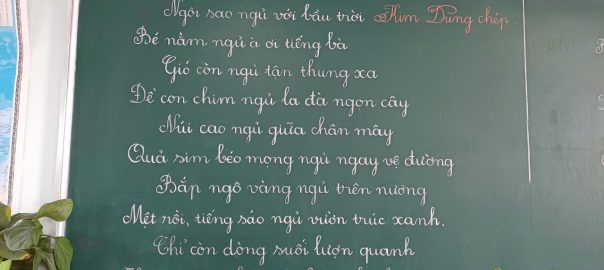 Ngôi sao ngủ với bầu trời Kim Dung chép.
Bé nằm ngủ à ơi tiếng bà
Gió còn ngủ tận thung xa
Để con chim ngủ la đà ngọn cây
Núi cao ngủ giữa chân mây
Quả sim béo mọng ngủ ngay vệ đường
Bắp ngô vàng ngủ trên nương
Mệt rồi, tiếng sáo ngủ vườn trúc xanh.
Chỉ còn dòng suối lượn quanh